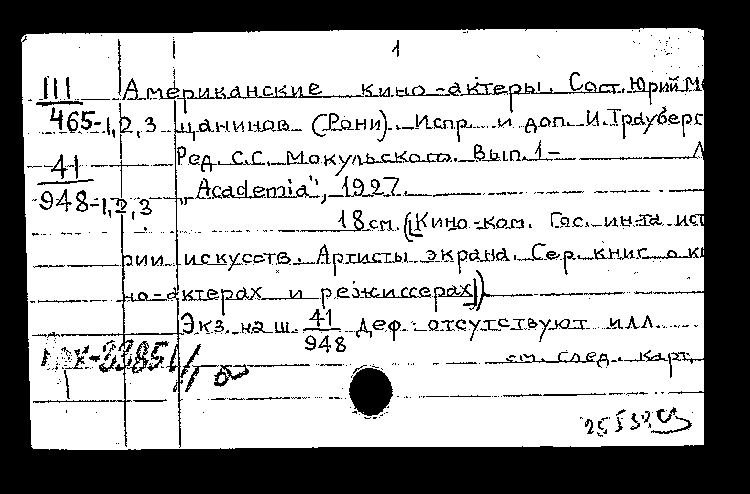 1
III Американские кино-актеры. Сост. Юрий М
465-1,2,3 цанинов (Рони). Испр. и доп. И. Трауберг
41 Ред. С.С. Мокульского. Вып. 1- Л
948-1,2,3 „Academia", 1927.
18 см. (Кино-ком. Гос. ин-та исто
рии искусств. Артисты экрана. Сер. книг о ки
но-актерах и режиссерах)
Экз. на ш. 41/948 деф.: отсутствуют илл.
см. след. карт.